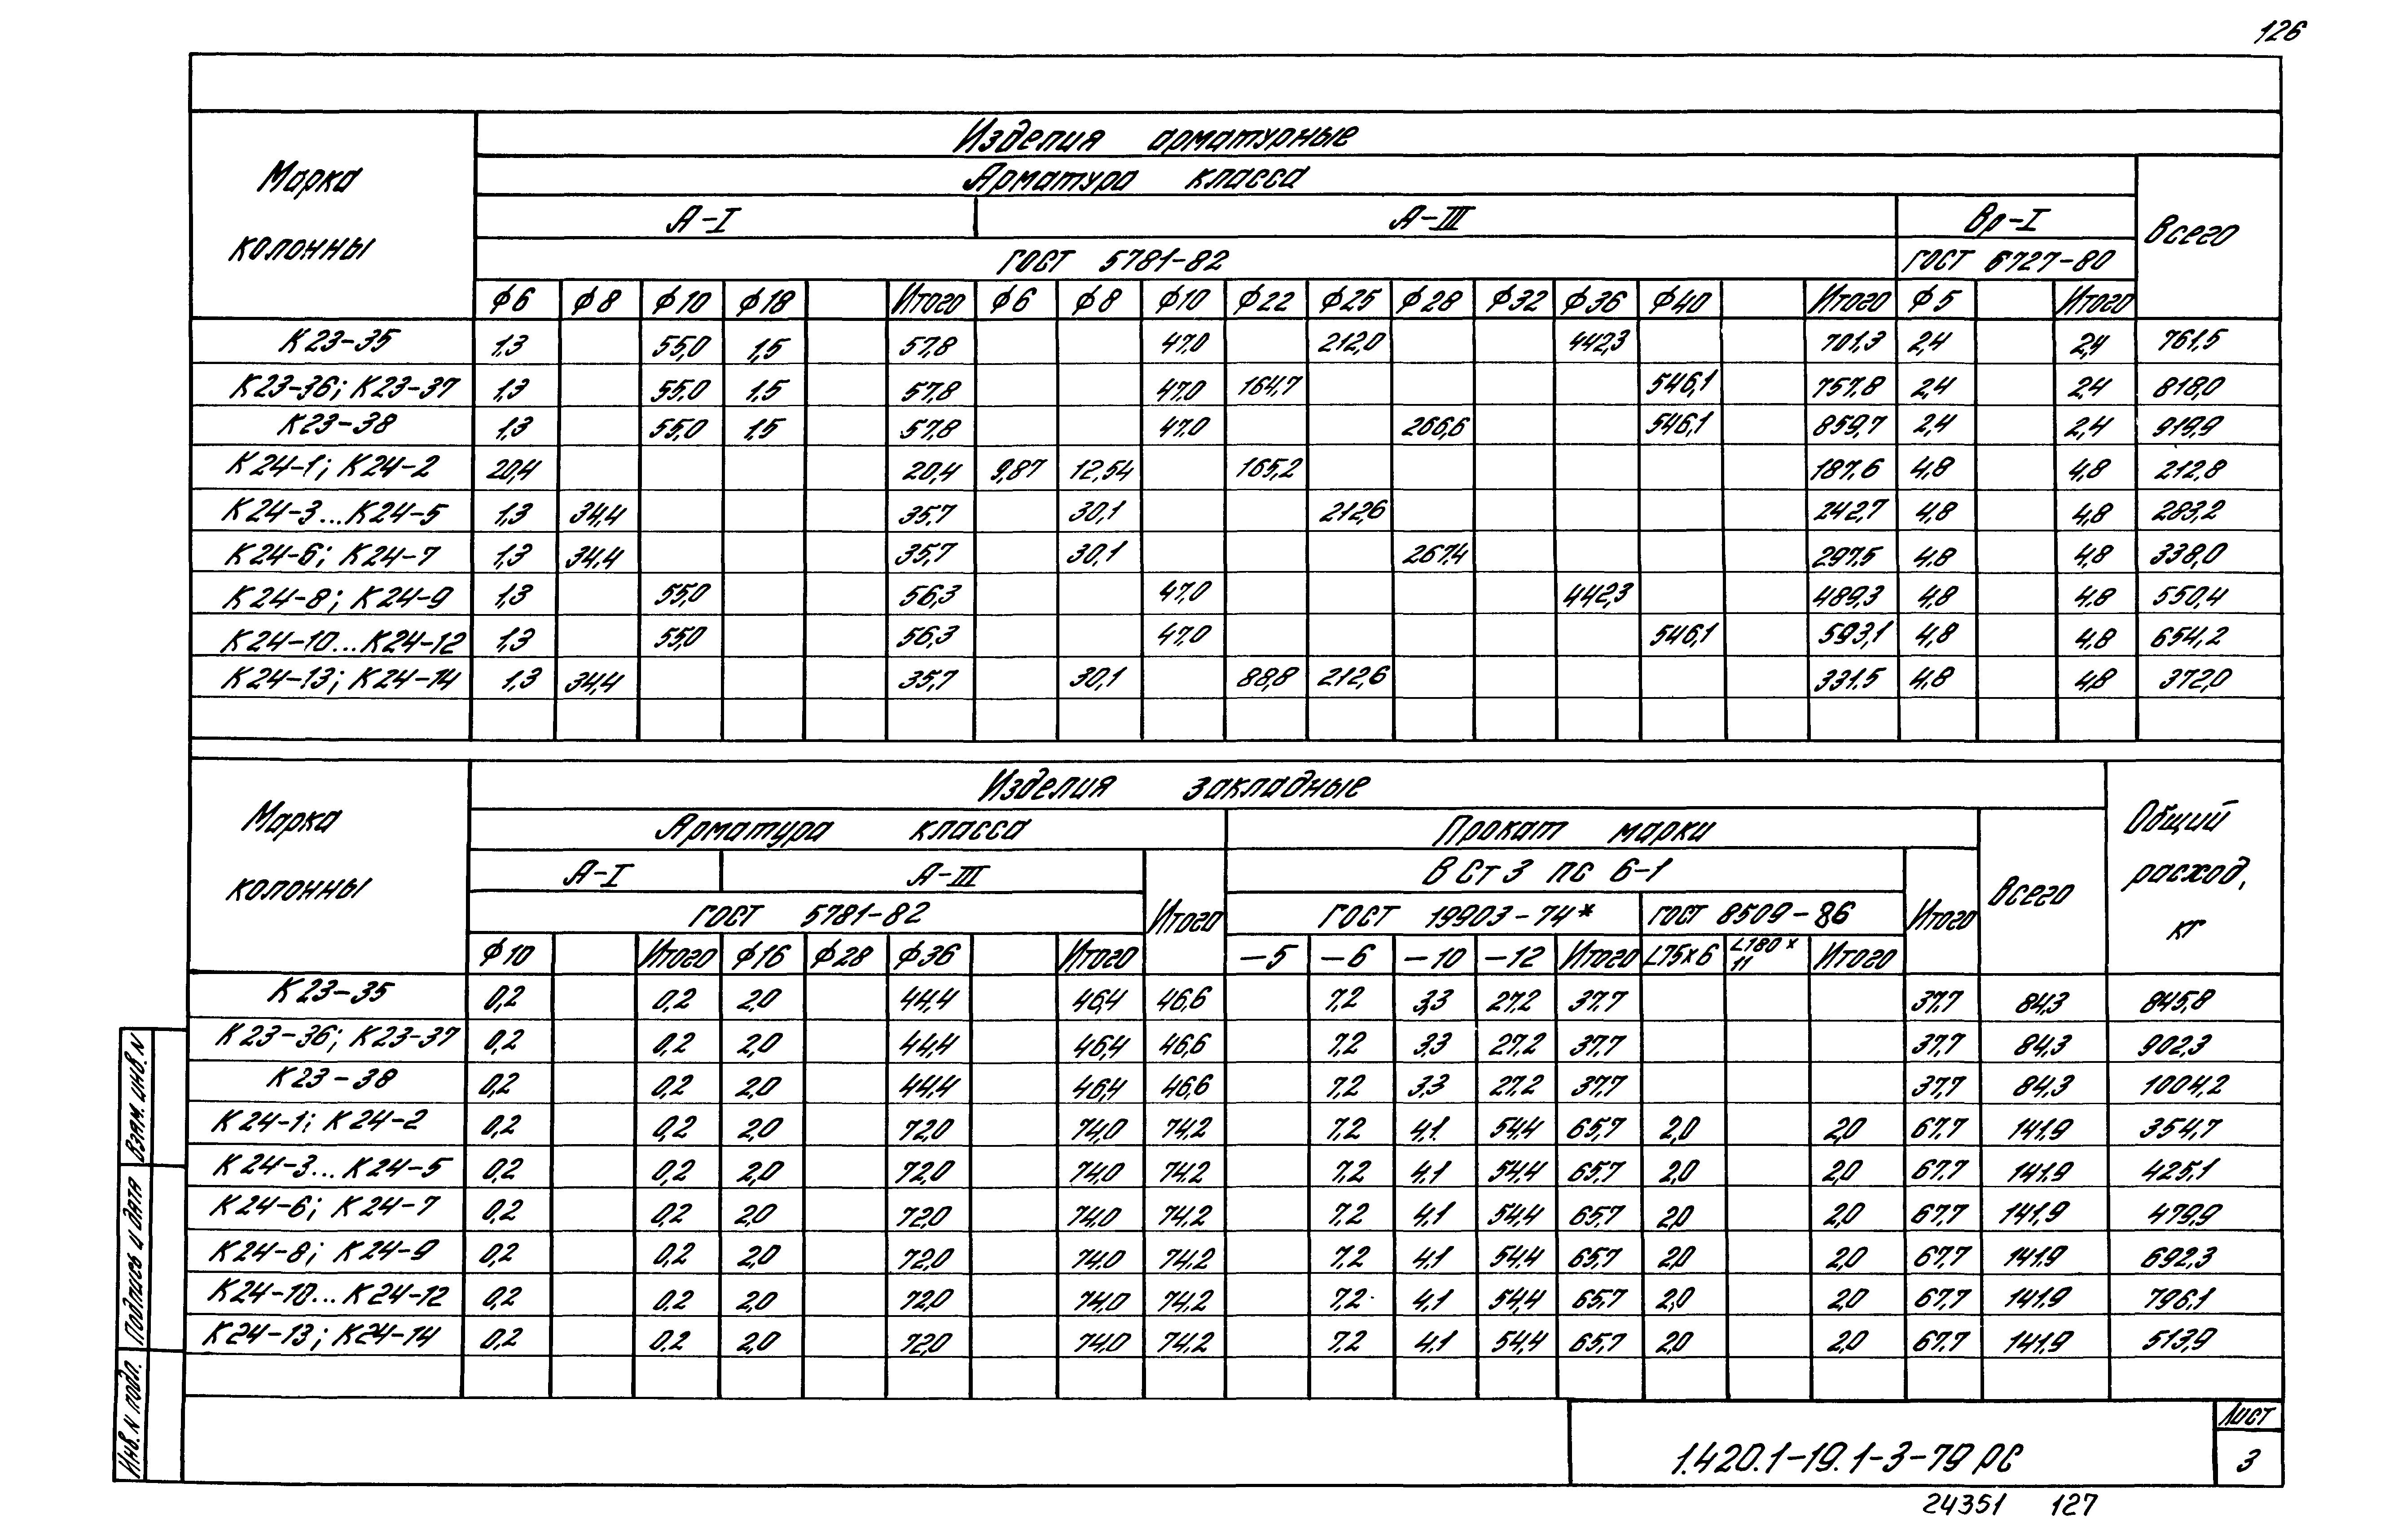 126
Изделия арматурные
Марка колонны
Арматура класса
Всего
А-I А-III Вр-I
ГОСТ 5781-82 ГОСТ 6727-80
ϕ6 ϕ8 ϕ10 ϕ18 Итого ϕ6 ϕ8 ϕ10 ϕ22 ϕ25 ϕ28 ϕ32 ϕ36 ϕ40 Итого ϕ5 Итого
К23-35 1,3 55,0 1,5 57,8 47,0 212,0 442,3 701,3 2,4 2,4 761,5
К23-36; К23-37 1,3 55,0 1,5 57,8 47,0 164,7 546,1 757,8 2,4 2,4 818,0
К23-38 1,3 55,0 1,5 57,8 47,0 266,6 546,1 859,7 2,4 2,4 919,9
К24-1; К24-2 20,4 20,4 9,87 12,54 165,2 187,6 4,8 4,8 212,8
К24-3...К24-5 1,3 34,4 35,7 30,1 212,6 242,7 4,8 4,8 283,2
К24-6; К24-7 1,3 34,4 35,7 30,1 267,4 297,5 4,8 4,8 338,0
К24-8; К24-9 1,3 55,0 56,3 47,0 442,3 489,3 4,8 4,8 550,4
К24-10...К24-12 1,3 55,0 56,3 47,0 546,1 593,1 4,8 4,8 654,2
К24-13; К24-14 1,3 34,4 35,7 30,1 88,8 212,6 331,5 4,8 4,8 372,0
Марка колонны
Изделия закладные
Общий расход, кг
Арматура класса Прокат марки
Всего
А-I А-III Итого В Ст 3 пс 6-1 Итого
ГОСТ 5781-82 ГОСТ 19903-74* ГОСТ 8509-86
ϕ10 Итого ϕ16 ϕ28 ϕ36 Итого -5 -6 -10 -12 Итого L75×6 L180×11 Итого
К23-35 0,2 0,2 2,0 44,4 46,4 46,6 7,2 3,3 27,2 37,7 37,7 84,3 845,8
К23-36; К23-37 0,2 0,2 2,0 44,4 46,4 46,6 7,2 3,3 27,2 37,7 37,7 84,3 902,3
К23-38 0,2 0,2 2,0 44,4 46,4 46,6 7,2 3,3 27,2 37,7 37,7 84,3 1004,2
К24-1; К24-2 0,2 0,2 2,0 72,0 74,0 74,2 7,2 4,1 54,4 65,7 2,0 2,0 67,7 141,9 354,7
К24-3...К24-5 0,2 0,2 2,0 72,0 74,0 74,2 7,2 4,1 54,4 65,7 2,0 2,0 67,7 141,9 425,1
К24-6; К24-7 0,2 0,2 2,0 72,0 74,0 74,2 7,2 4,1 54,4 65,7 2,0 2,0 67,7 141,9 479,9
К24-8; К24-9 0,2 0,2 2,0 72,0 74,0 74,2 7,2 4,1 54,4 65,7 2,0 2,0 67,7 141,9 692,3
К24-10...К24-12 0,2 0,2 2,0 72,0 74,0 74,2 7,2 4,1 54,4 65,7 2,0 2,0 67,7 141,9 796,1
К24-13; К24-14 0,2 0,2 2,0 72,0 74,0 74,2 7,2 4,1 54,4 65,7 2,0 2,0 67,7 141,9 513,9
Взам. инв. N
Подпись и дата
Инв. N подл.
1.420.1-19.1-3-79 РС
Лист
3
24351 127